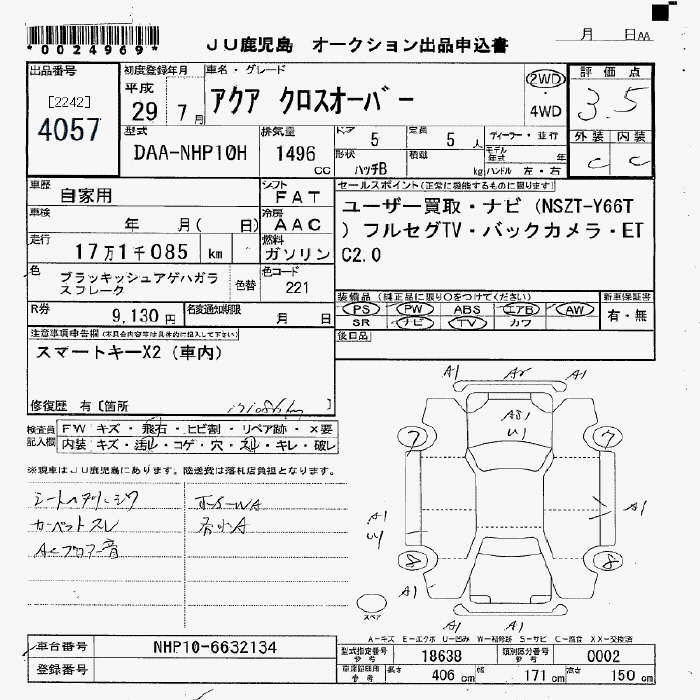 *0024969*
JU鹿児島 オークション出品申込書
月 日AA
出品番号
[2242]
4057
初度登録年月
平成
29 7月
車名・グレード
アクア クロスオーバー
2WD
・
4WD
評価点
3.5
外装 内装
C C
型式
DAA-NHP10H
排気量
1496
CC
ドア
5
定員
5 人
形状
ハッチB
積載
kg
ディーラー・並行
モデル年式 年
ハンドル 左・右
車歴
自家用
シフト
FAT
車検
年 月( 日)
冷房
AAC
走行
17万1千085 km
燃料
ガソリン
色
ブラッキッシュアゲハガラスフレーク
色替
色コード
221
R券
9,130 円
名変通知期限
月 日
セールスポイント(正常に機能するものに限ります)
ユーザー買取・ナビ(NSZT-Y66T
)フルセグTV・バックカメラ・ET
C2.0
装備品(純正品に限り○をつけてください)
PS・PW・ABS・エアB・AW
SR ナビ・TV・カワ
新車保証書
有・無
後日品
注意事項申告欄(不具合内容等は具体的に記入して下さい)
スマートキーX2(車内)
修復歴 有〔箇所 〕
検査員記入欄
FW キズ・飛石・ヒビ割・リペア跡・×要
内装 キズ・汚レ・コゲ・穴・スレ・キレ・破レ
※現車はJU鹿児島にあります。陸送費は落札店負担となります。
カーペットスレ
A1 A1
A1
U1
7 7
A1 A1
8 8
A1 A1
A1 A1
スペア
A-キズ E-エクボ U-凹み W-補修跡 S-サビ C-腐食 XX-交換済
車台番号
NHP10-6632134
登録番号
型式指定番号
参考
18638
類別区分番号
参考
0002
車検証記載
参考
長さ 406 cm 幅 171 cm 高さ 150 cm